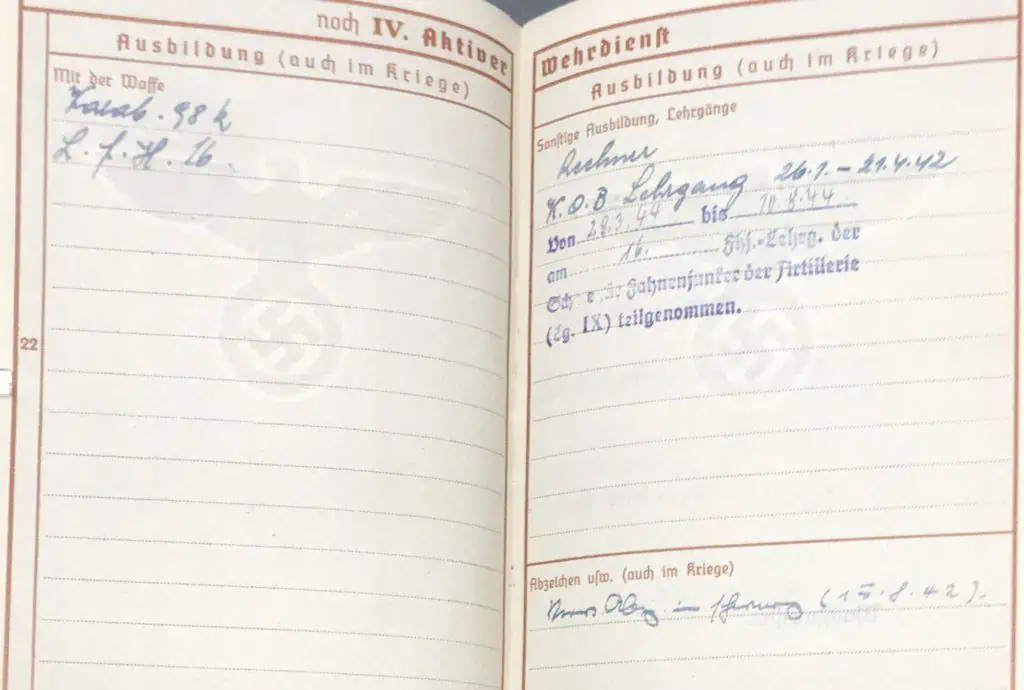 noch IV. Aktiver
Ausbildung (auch im Kriege)
Mit der Waffe
Karab. 98 k
L. F. H. 16
22
Wehrdienst
Ausbildung (auch im Kriege)
Sonstige Ausbildung, Lehrgänge
Rechner
K.O.B Lehrgang 26.1. – 21.4.42
Von 28.3.44 bis 10.8.44
am 16. Fhj.-Lehrg. der
Fahnenjunker der Artillerie
(Lg. IX) teilgenommen.
Abzeichen usw. (auch im Kriege)